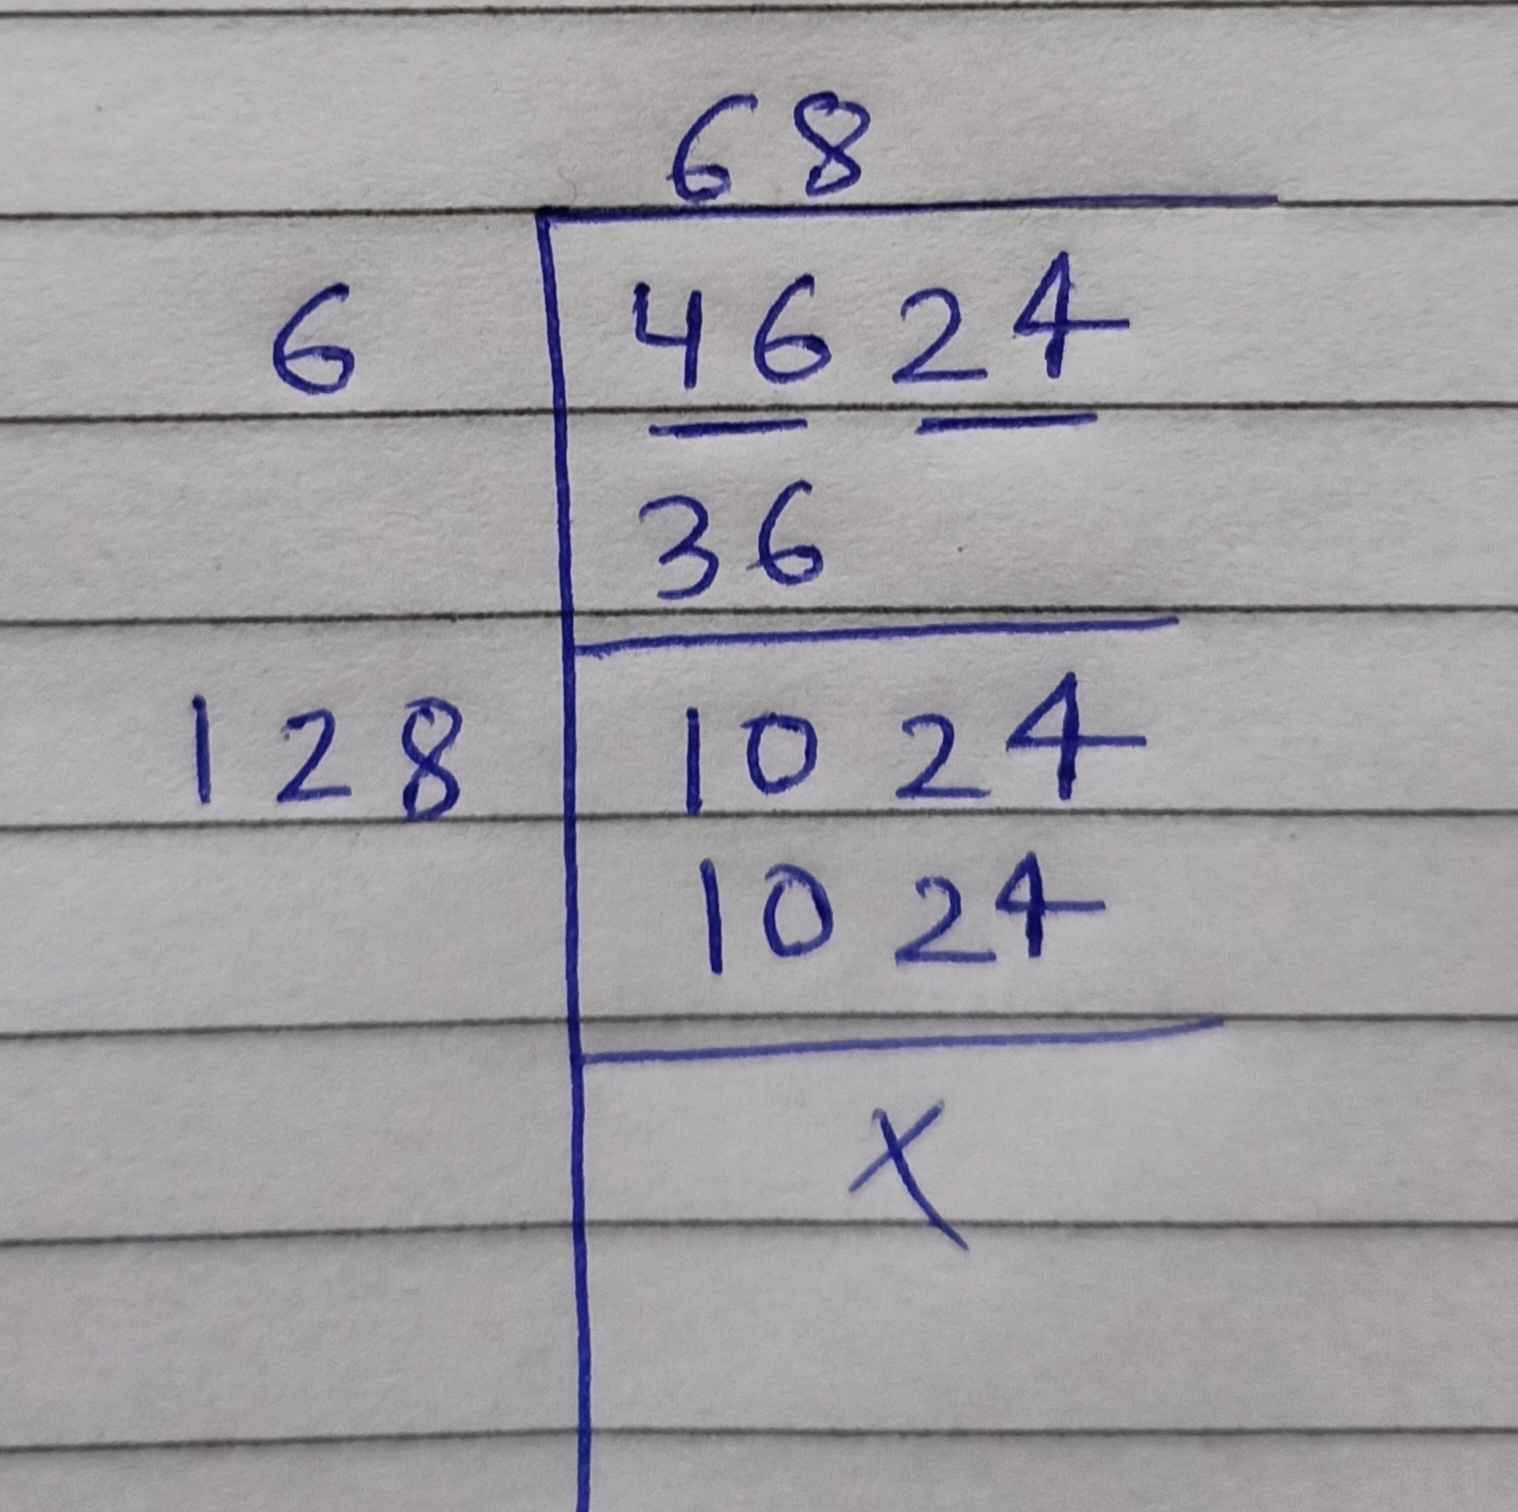 68
6 4624
36
128 1024
1024
x